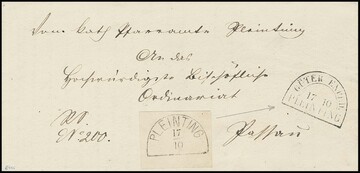 Vom Kath. Pfarramte Pleinting
An das
Hochwürdigste Bischöfliche
Ordinariat
GÜTER EXPED.
17
10
PLEINTING
No 200.
PLEINTING
17
10
Passau